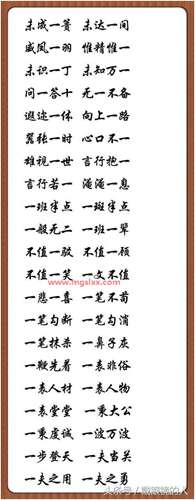 未成一篑 未达一间
威凤一羽 惟精惟一
未识一丁 未知万一
问一答十 无一不备
遐迩一体 向上一路
嚣张一时 心口不一
雄视一世 言行抱一
言行若一 淹淹一息
一班半点 一斑半点
一般无二 一班一辈
不值一驳 不值一顾
不值一笑 一文不值
www.lmgslxx.com
一悲一喜 一笔不苟
一笔勾断 一笔勾消
一笔抹杀 一鼻子灰
一鞭先着 一表非俗
一表人材 一表人物
一表堂堂 一秉大公
一秉虔诚 一波万波
一步登天 一夫当关
一夫之用 一夫之勇